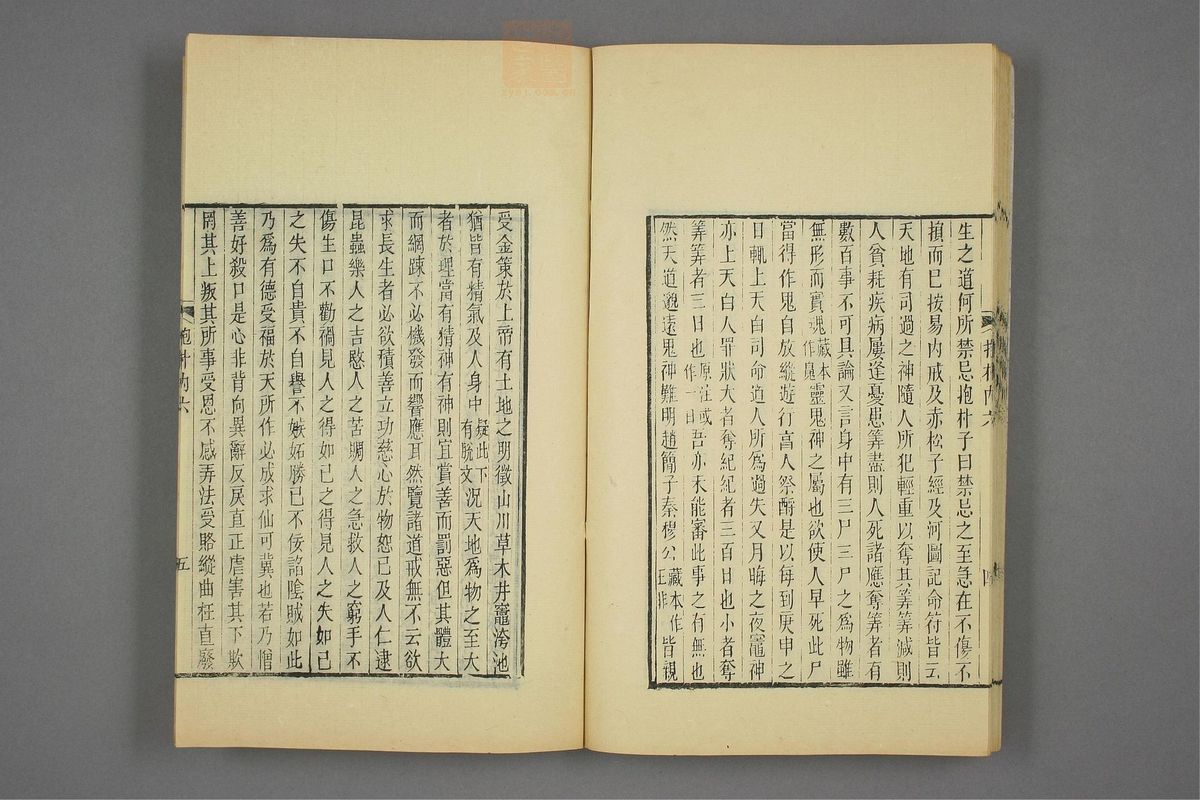 生之道何所禁忌抱朴子曰禁忌之至急在不傷不
損而已按易内戒及赤松子經及河圖記命符皆云
天地有司過之神隨人所犯輕重以奪其筭筭減則
人貧耗疾病屢逢憂患筭盡則人死諸應奪筭者有
數百事不可具論又言身中有三尸三尸之爲物雖
無形而實魂藏本作鬼靈鬼神之屬也欲使人早死此尸
當得作鬼自放縱遊行享人祭酹是以每到庚申之
日輒上天白司命道人所爲過失又月晦之夜竈神
亦上天白人罪狀大者奪紀紀者三百日也小者奪
筭筭者三日也原注或作一日吾亦未能審此事之有無也
然天道邈遠鬼神難明趙簡子秦穆公藏本作王非皆親
四
受金策於上帝有土地之明徵山川草木井竈洿池
猶皆有精氣及人身中疑此下有脫文況天地爲物之至大
者於理當有精神有神則宜賞善而罰惡但其體大
而網踈不必機發而響應耳然覽諸道戒無不云欲
求長生者必欲積善立功慈心於物恕己及人仁逮
昆蟲樂人之吉愍人之苦賙人之急救人之窮手不
傷生口不勸禍見人之得如己之得見人之失如己
之失不自貴不自譽不嫉妬勝己不佞諂陰賊如此
乃爲有德受福於天所作必成求仙可冀也若乃憎
善好殺口是心非背向異辭反戾直正虐害其下欺
罔其上叛其所事受恩不感弄法受賂縱曲枉直廢
抱朴内六
五